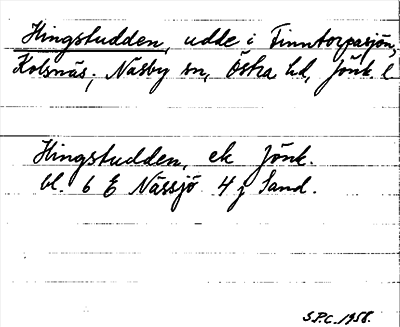 Hingstudden, udde i Finntorpasjön,
Kolsnäs, Näsby sn, Östra hd, Jönk. l
Hingstudden, ek Jönk.
bl. 6 E Nässjö 4 j Sand.
S.P.C. 1958.